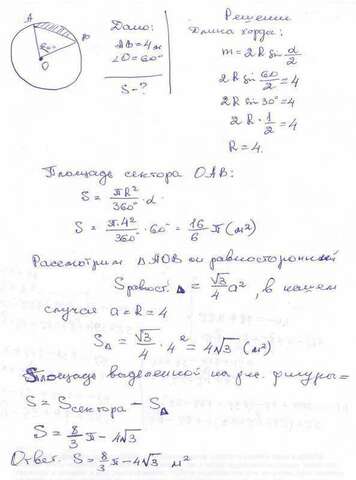 A
B
60°
O
Дано:
AB = 4 м
∠O = 60°
S - ?
Решение
Длина хорды:
m = 2R sin α/2
2R sin 60/2 = 4
2R sin 30° = 4
2R · 1/2 = 4
R = 4.
Площадь сектора OAB:
S = πR²/360° · α
S = π·4²/360° · 60° = 16/6 π (м²)
Рассмотрим ΔAOB он равносторонний
Sравност. Δ = √3/4 a², в нашем
случае a = R = 4
SΔ = √3/4 · 4² = 4√3 (м²)
Площадь выделенной на рис. фигуры =
S = Sсектора − SΔ
S = 8/3 π − 4√3
Ответ: S = 8/3 π − 4√3 м²